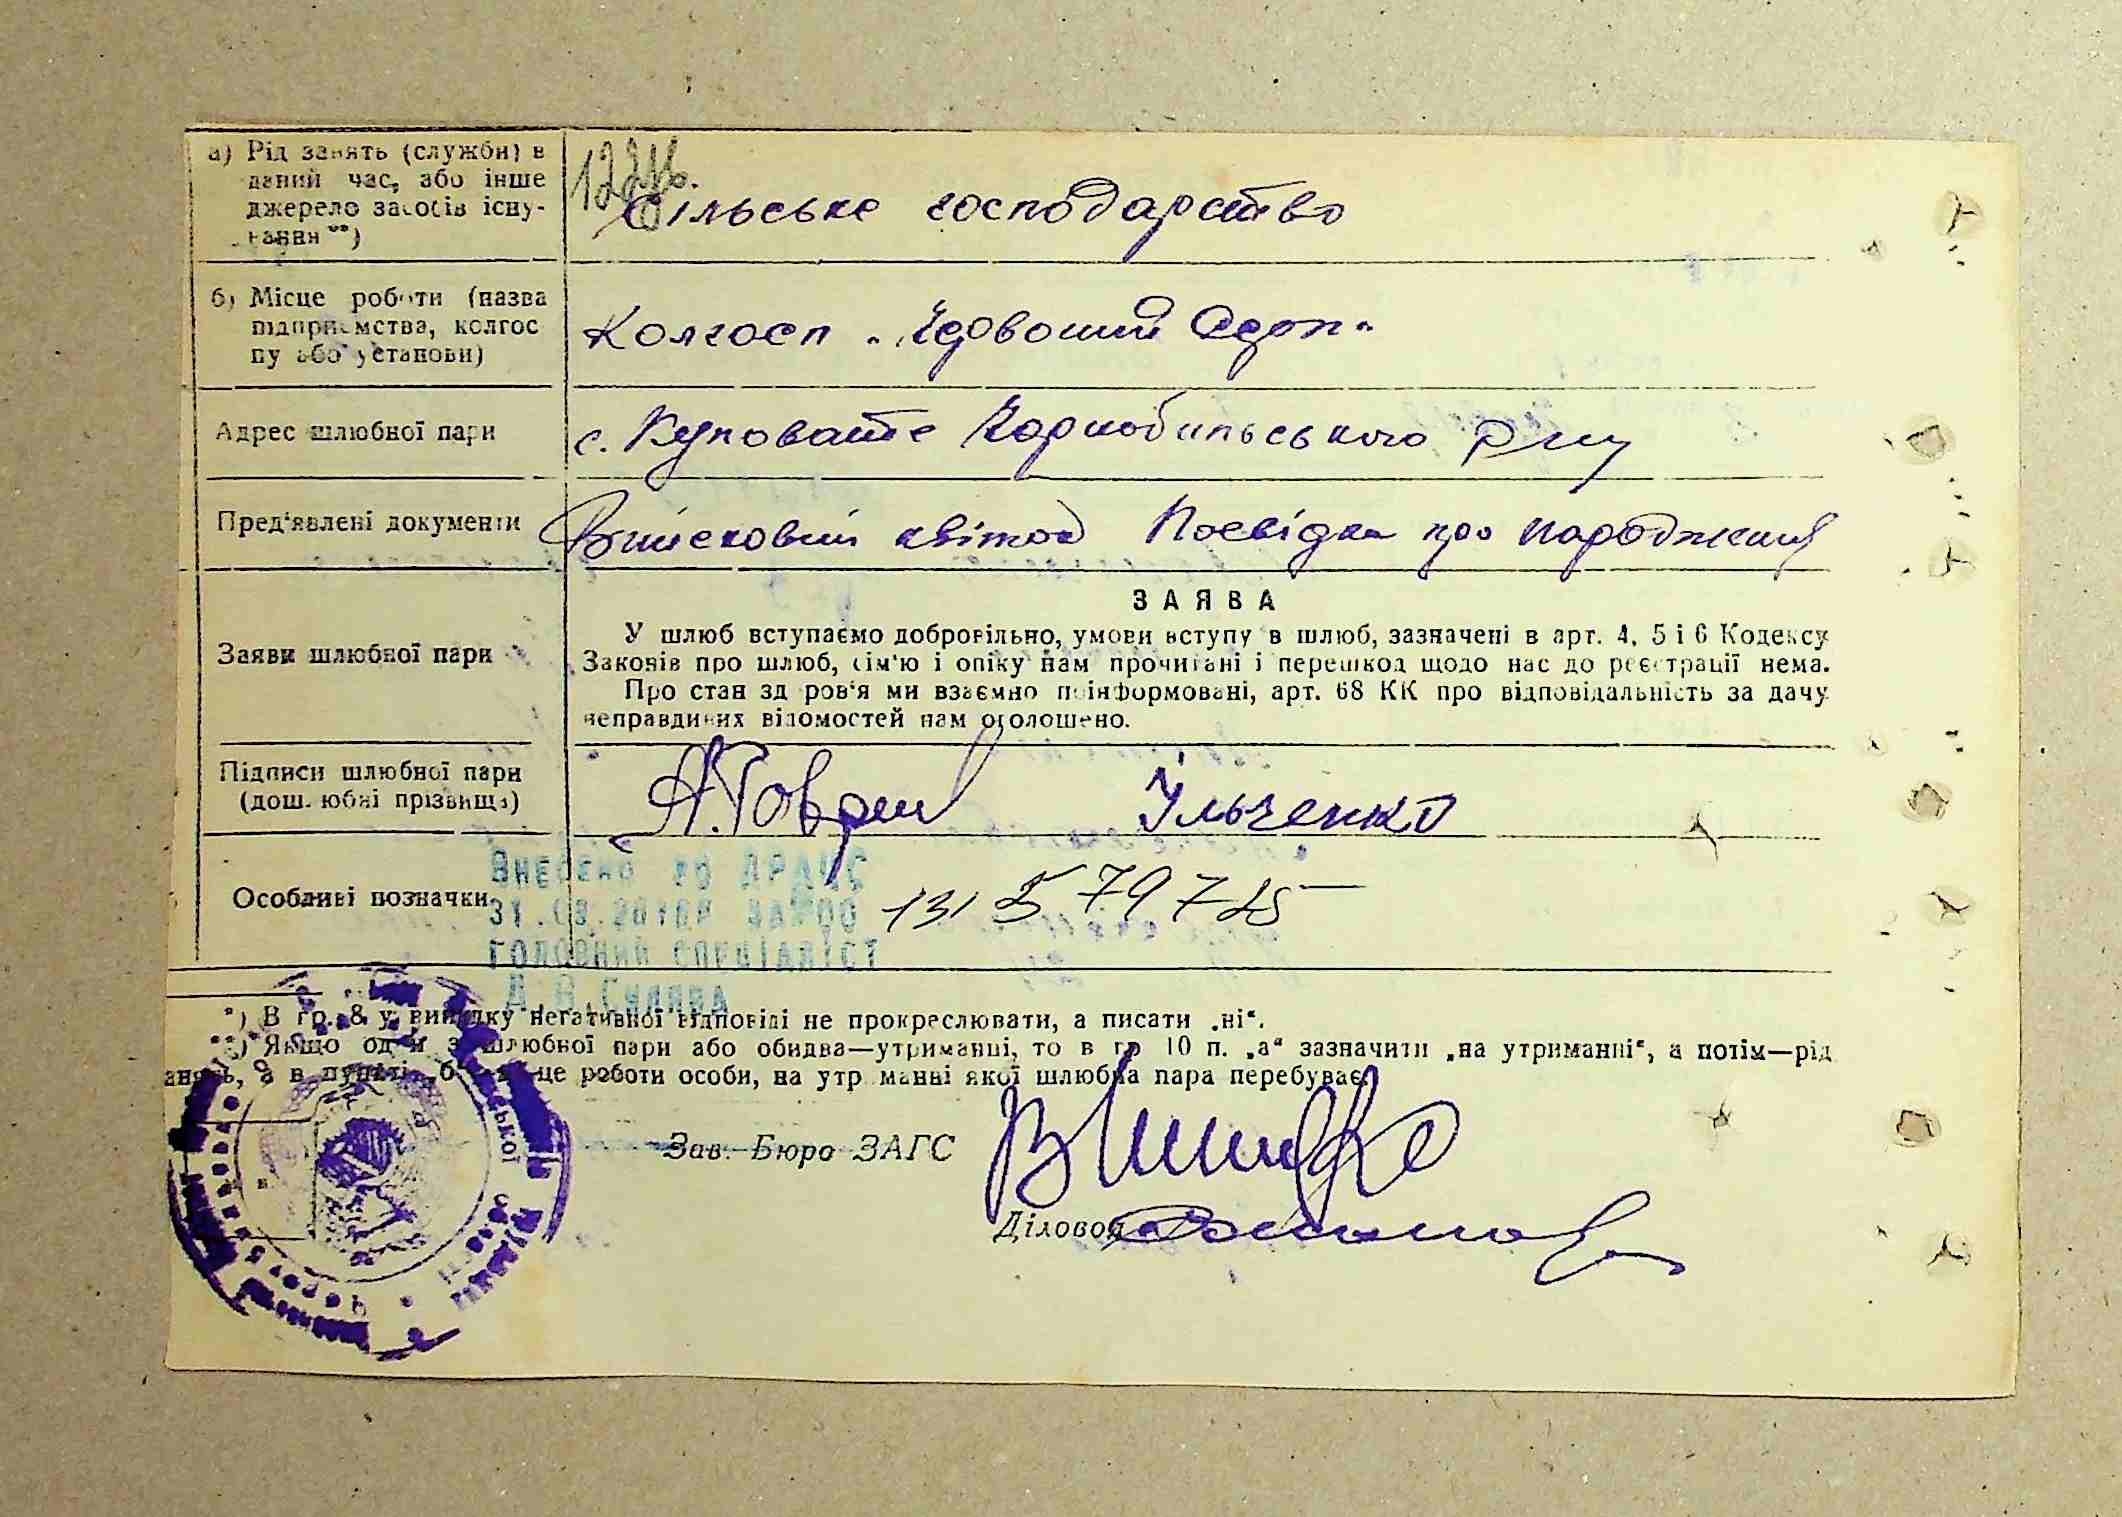 а) Рід занять (служби) в
даний час, або інше
джерело засобів існу-
вання**)
Сільське господарство
б) Місце роботи (назва
підприємства, колгос
пу або установи)
Колгосп „Червоний
Адрес шлюбної пари
с. Куповате Чорнобильського р-ну
Пред'явлені документи
Військовий квіток Посвідка про народження
Заяви шлюбної пари
ЗАЯВА
У шлюб вступаємо добровільно, умови вступу в шлюб, зазначені в арт. 4, 5 і 6 Кодексу
Законів про шлюб, сім'ю і опіку нам прочитані і перешкод щодо нас до реєстрації нема.
Про стан здоров'я ми взаємно поінформовані, арт. 68 КК про відповідальність за дачу
неправдивих відомостей нам оголошено.
Підписи шлюбної пари
(дошлюбні прізвища)
Ільченко
Особливі позначки
Внесено до ДРАЦС
ГОЛОВНИЙ СПЕЦІАЛІСТ
*) В гр. 8 у випадку негативної відповіді не прокреслювати, а писати „ні“.
**) Якщо один з шлюбної пари або обидва—утриманці, то в гр 10 п. „а“ зазначити „на утриманні“, а потім—рід
занять, а в пункті „б“ місце роботи особи, на утриманні якої шлюбна пара перебуває.
Зав. Бюро ЗАГС
Діловод